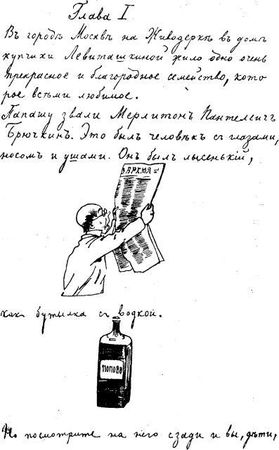 Глава I
Въ городѣ Москвѣ на Живодеркѣ въ домѣ
купчихи Левиташкиной жило одно очень
прекрасное и благородное семейство, кото-
рое всѣми любимое.
Папашу звали Мерлитонъ Пантелеичъ
Брючкинъ. Это былъ человѣкъ съ глазами,
носомъ и ушами. Онъ былъ лысенькій,
БИРЖЕВ
какъ бутылка съ водкой.
ПОПОВА
Но посмотрите на него сзади и вы, дѣти,